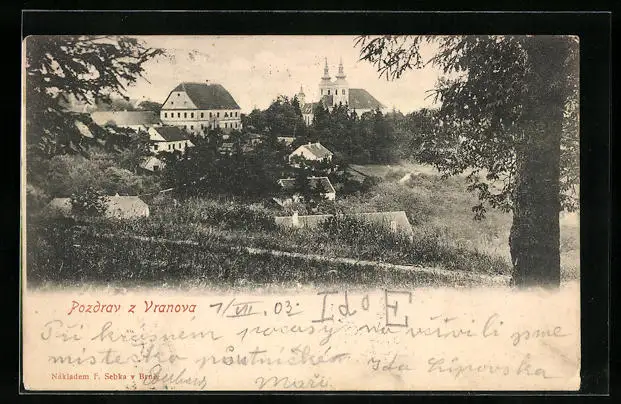 Pozdrav z Vranova
7/VII. 03. IdoE
Při krásném počasý na vštívili jsme
městečko poutnické Ida Lípovska
Nákladem F. Sebka v Brně.